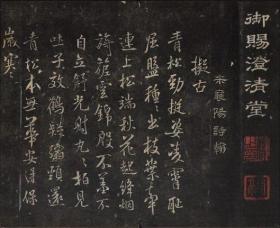 御賜澄清堂
米襄陽詩翰
擬古
青松勁挺姿凌霄恥
屈盤種種出枝葉牽
連上松端秋花起絳烟
旖旎雲錦殷不羞不
自立舒光射丸丸柏見
吐子效鶴疑縮頸還
青松本無華安得保
歲寒